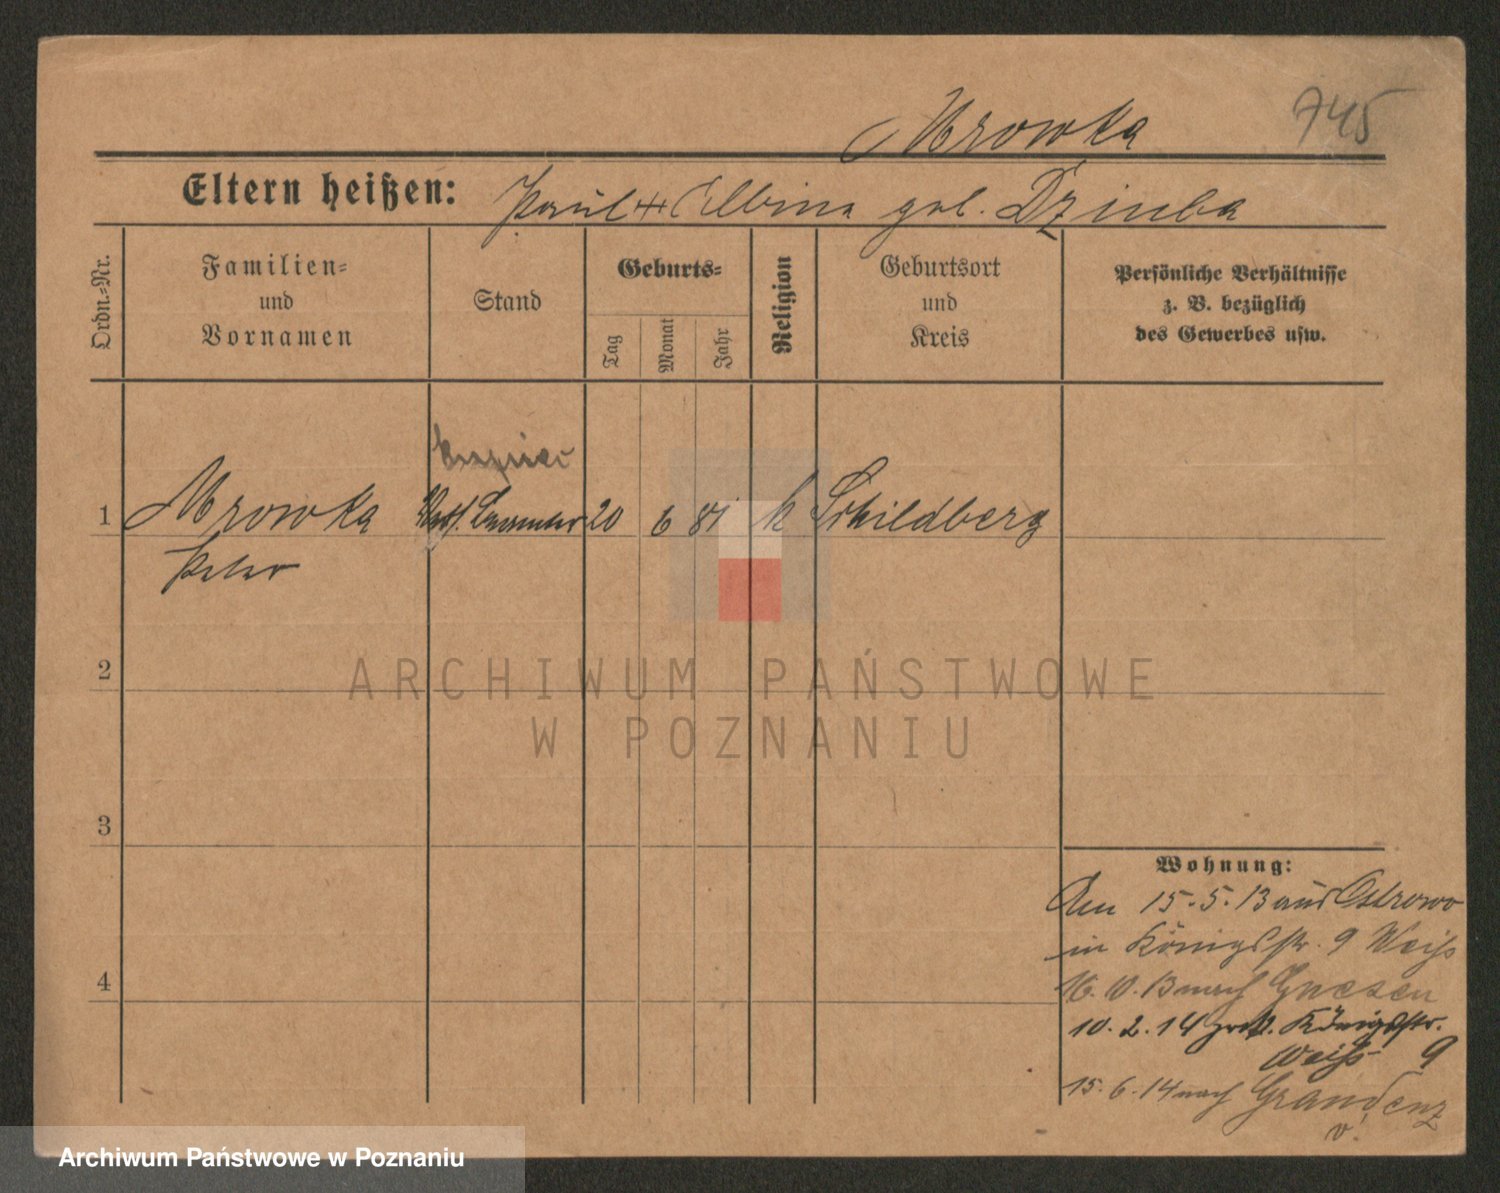 Mrowka 745
Eltern heißen: Paul + Albina geb. Dziuba
Ordn.-Nr.
Familien-
und
Vornamen
Stand
Geburts-
Tag
Monat
Jahr
Religion
Geburtsort
und
Kreis
Persönliche Verhältnisse
z. B. bezüglich
des Gewerbes usw.
1 Mrowka 20 6 81 k Schildberg
Peter
2
3
4
Wohnung:
Am 15.5.13 aus Ostrowo
in Königsstr. 9 Weiss
16.10.13 nach Gnesen
10.2.14 Königsstr.
Weiss 9
15.6.14 nach Graudenz
ARCHIWUM PAŃSTWOWE
W POZNANIU
Archiwum Państwowe w Poznaniu